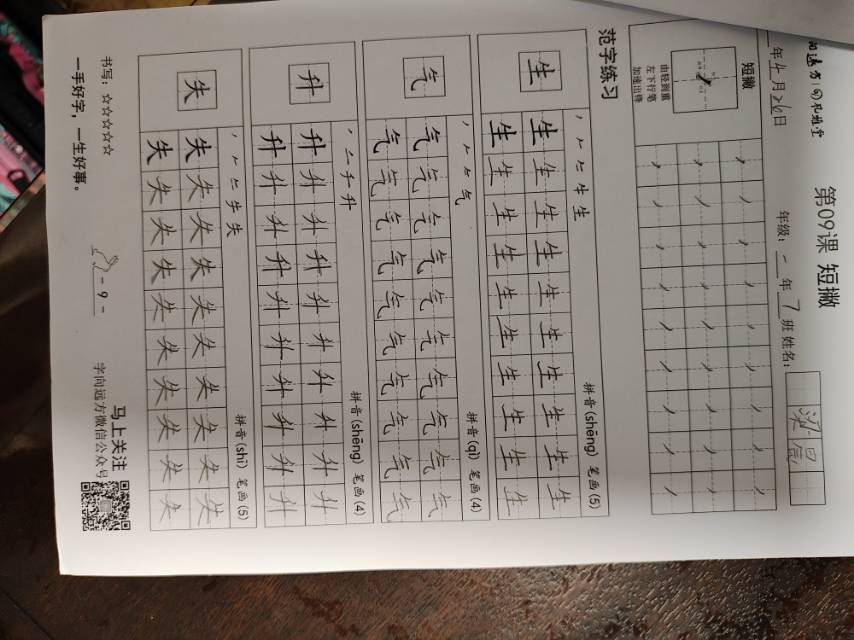 第09课 短撇
年4月26日 年级：一年7班 姓名：梁
短撇
由轻到重
左下行笔
加速出锋
范字练习
生 拼音(shēng) 笔画(5)
生生生生生生生生生生
生生生生生生生生生生
气 拼音(qì) 笔画(4)
气气气气气气气气气气
气气气气气气气气气气
升 拼音(shēng) 笔画(4)
升升升升升升升升升升
升升升升升升升升升升
失 拼音(shī) 笔画(5)
失失失失失失失失失失
失失失失失失失失失失
书写：☆☆☆☆☆
一手好字，一生好事。
- 9 -
马上关注
字向远方微信公众号